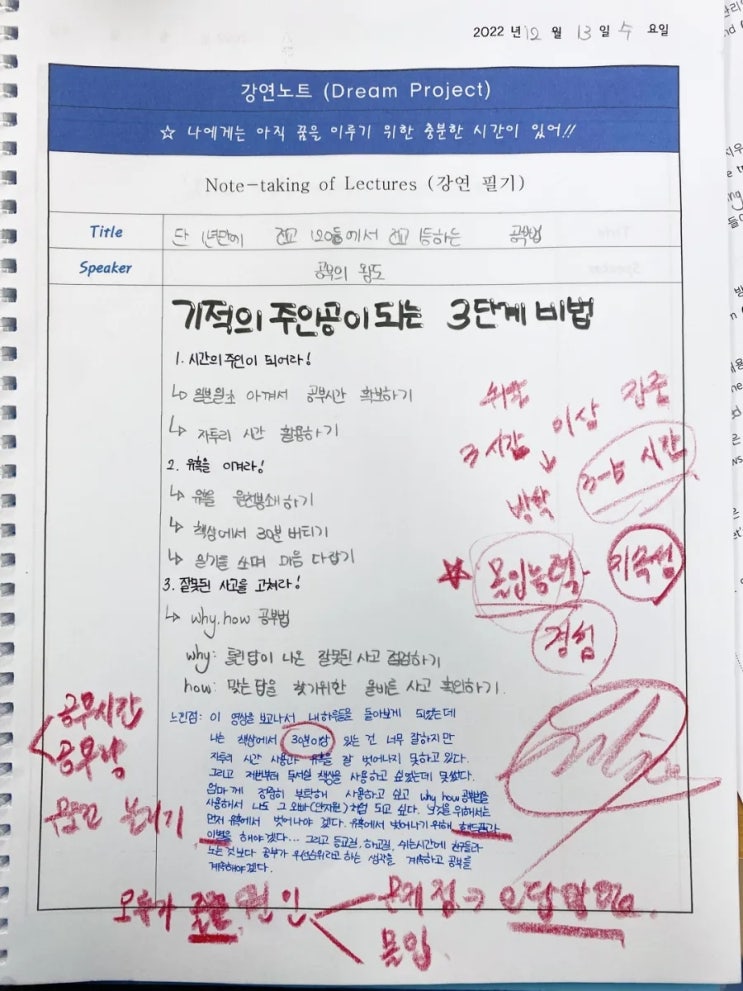 2022 년 12 월 13 일 수 요일
강연노트 (Dream Project)
☆ 나에게는 아직 꿈을 이루기 위한 충분한 시간이 있어!!
Note-taking of Lectures (강연 필기)
Title
단 1년만에 전교 120등에서 전교 1등하는 공부법
Speaker
공부의 왕도
기적의 주인공이 되는 3단계 비법
1. 시간의 주인이 되어라!
↳ 일분일초 아껴서 공부시간 확보하기
↳ 자투리 시간 활용하기
2. 유혹을 이겨라!
↳ 유혹을 원천봉쇄하기
↳ 책상에서 30분 버티기
↳ 일기를 쓰며 마음 다잡기
3. 잘못된 사고를 고쳐라!
↳ why, how 공부법
why: 틀린답이 나온 잘못된 사고 점검하기
how: 맞는답을 찾기위한 올바른 사고 확인하기.
느낀점: 이 영상을 보고나서 내 하루들을 돌아보게 되었는데
나는 책상에서 30분이상 있는 건 너무 잘하지만
자투리 시간 사용과 유혹을 잘 벗어나지 못하고 있다.
그리고 저번부터 독서실 책상을 사용하고 싶었는데 못썼다.
엄마께 강력히 부탁해 사용하고 싶고 why how 공부법을
사용해서 나도 그 오빠 처럼 되고 싶다. 그것을 위해서는
먼저 유혹에서 벗어나야 겠다. 유혹에서 벗어나기 위해 핸드폰과
이별을 해야겠다... 그리고 등교길, 하교길, 쉬는시간에 친구들과
노는것보다 공부가 우선순위라고 하는 생각을 계속하고 공부를
계속해야겠다.
3시간 이상 집중
↓
방학 3-4 시간
☆ 몰입능력 - 지속성
경험
공부시간
공부량
원인
문제점 → 오답 할 필요.
몰입.